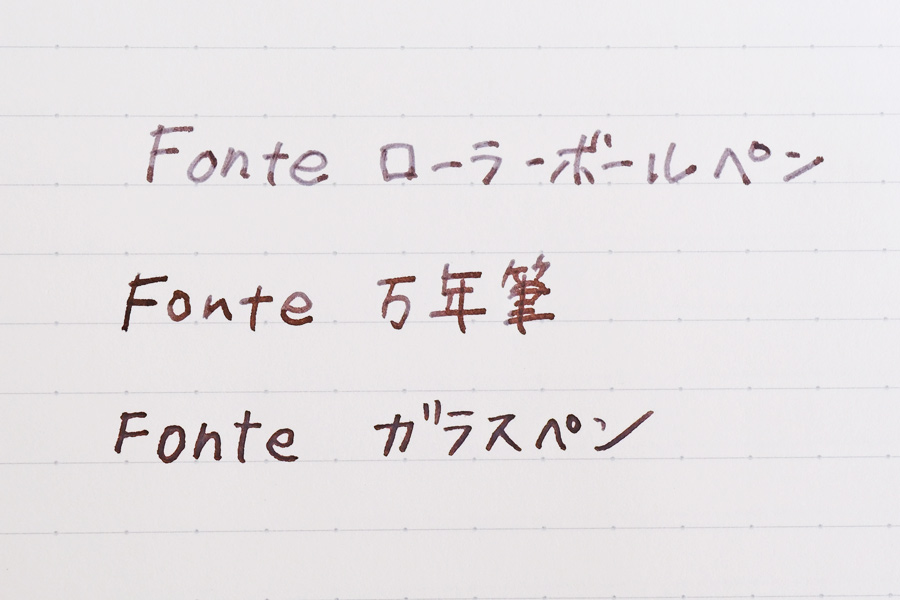 Fonte ローラーボールペン
Fonte 万年筆
Fonte ガラスペン